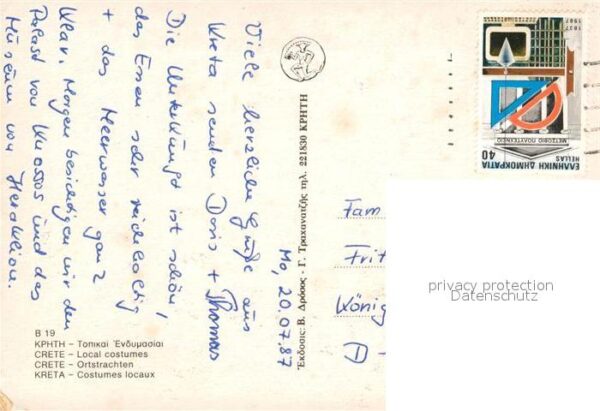 Viele herzliche Grüße aus
Kreta senden Doris + Thomas
Die Unterkunft ist schön,
das Essen sehr reichhaltig
+ das Meerwasser ganz
klar. Morgen besichtigen wir den
Palast von Knossos und das
Museum von Heraklion.
Mo, 20.07.87
B 19
ΚΡΗΤΗ – Τοπικαί Ἐνδυμασίαι
CRETE – Local costumes
CRETE – Ortstrachten
KRETA – Costumes locaux
Ἐκδοσις: Β. Δρόσος - Γ. Τραχανατζῆς τηλ. 221830 ΚΡΗΤΗ
1837
1987
ΜΕΤΣΟΒΙΟ ΠΟΛΥΤΕΧΝΕΙΟ
ΕΛΛΗΝΙΚΗ ΔΗΜΟΚΡΑΤΙΑ
HELLAS 40
Fam
Frit
König
D -
privacy protection
Datenschutz